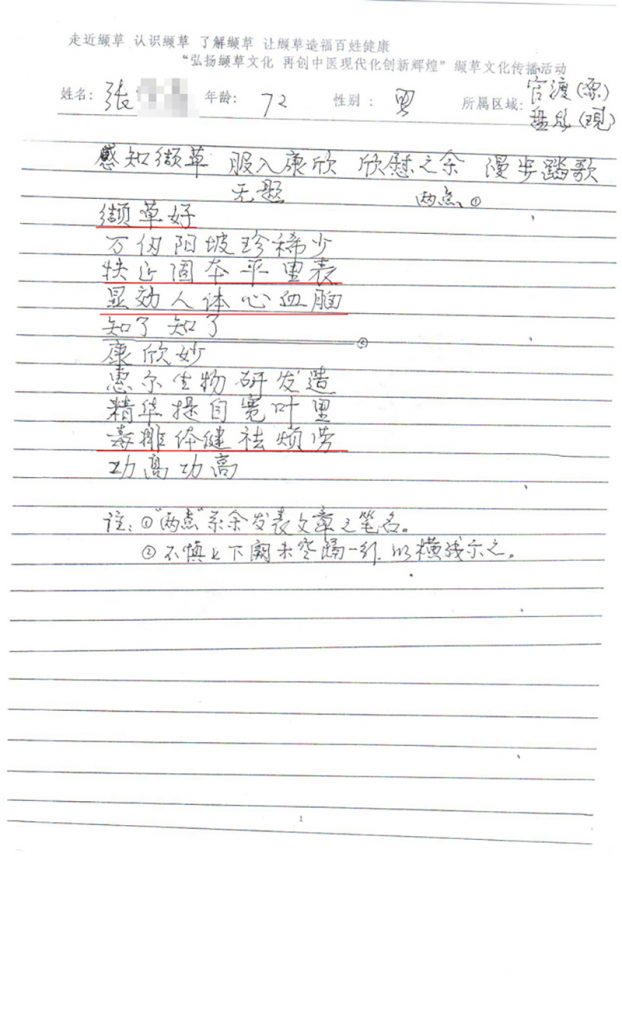 走近缬草 认识缬草 了解缬草 让缬草造福百姓健康
“弘扬缬草文化 再创中医现代化创新辉煌”缬草文化传播活动
姓名: 张 年龄: 72 性别: 男 所属区域: 官渡(原)
盘龙(现)
感知缬草 服入康欣 欣慰之余 漫步踏歌
无题 两点①
缬草好
万仞阳坡珍稀少
扶正固本平里表
显效人体心血脑
知了 知了
②
康欣妙
惠尔生物研发造
精华提自宽叶里
毒排体健祛烦劳
功高功高
注:①“两点”系余发表文章之笔名。
②不慎上下阕未空隔一行,以横线示之。
1